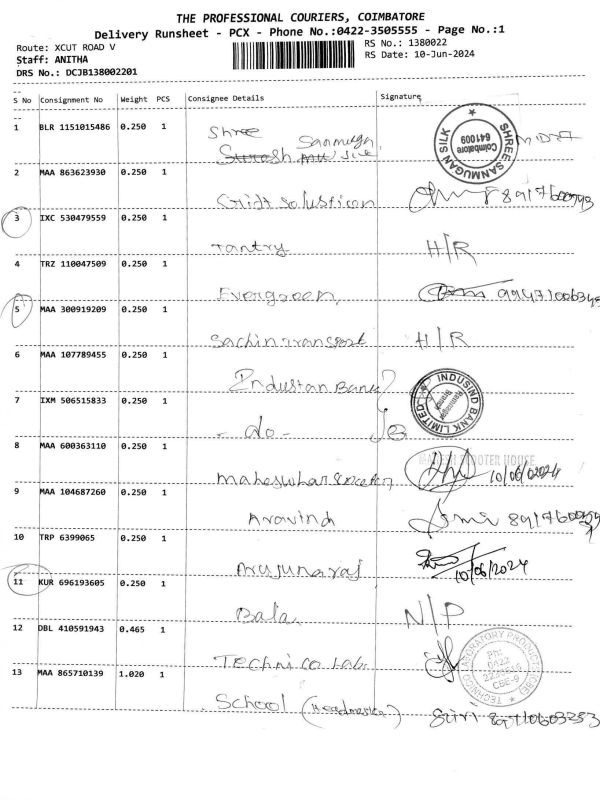 THE PROFESSIONAL COURIERS, COIMBATORE
Delivery Runsheet - PCX - Phone No.:0422-3505555 - Page No.:1
Route: XCUT ROAD V
RS No.: 1380022
Staff: ANITHA
RS Date: 10-Jun-2024
DRS No.: DCJB138002201
S No Consignment No Weight PCS Consignee Details Signature
1 BLR 1151015486 0.250 1 Shree Sanmugan
SHREE SANMUGAN SILK Coimbatore 641009
2 MAA 863623930 0.250 1
3 IXC 530479559 0.250 1 Tantry H/R
4 TRZ 110047509 0.250 1 Evergreen
5 MAA 300919209 0.250 1 Sachin Transport H/R
6 MAA 107789455 0.250 1 Industan Bank
INDUSIND BANK LIMITED
7 IXM 506515833 0.250 1 - do -
8 MAA 600363110 0.250 1 10/06/2024
SCOOTER HOUSE
9 MAA 104687260 0.250 1 Aravind
10 TRP 6399065 0.250 1 Arujunaraj 10/06/2024
11 KUR 696193605 0.250 1 Bala N/P
12 DBL 410591943 0.465 1 Technico Lab.
TECHNICO LABORATORY PRODUCTS CBE-9
13 MAA 865710139 1.020 1 School (Headmaster)